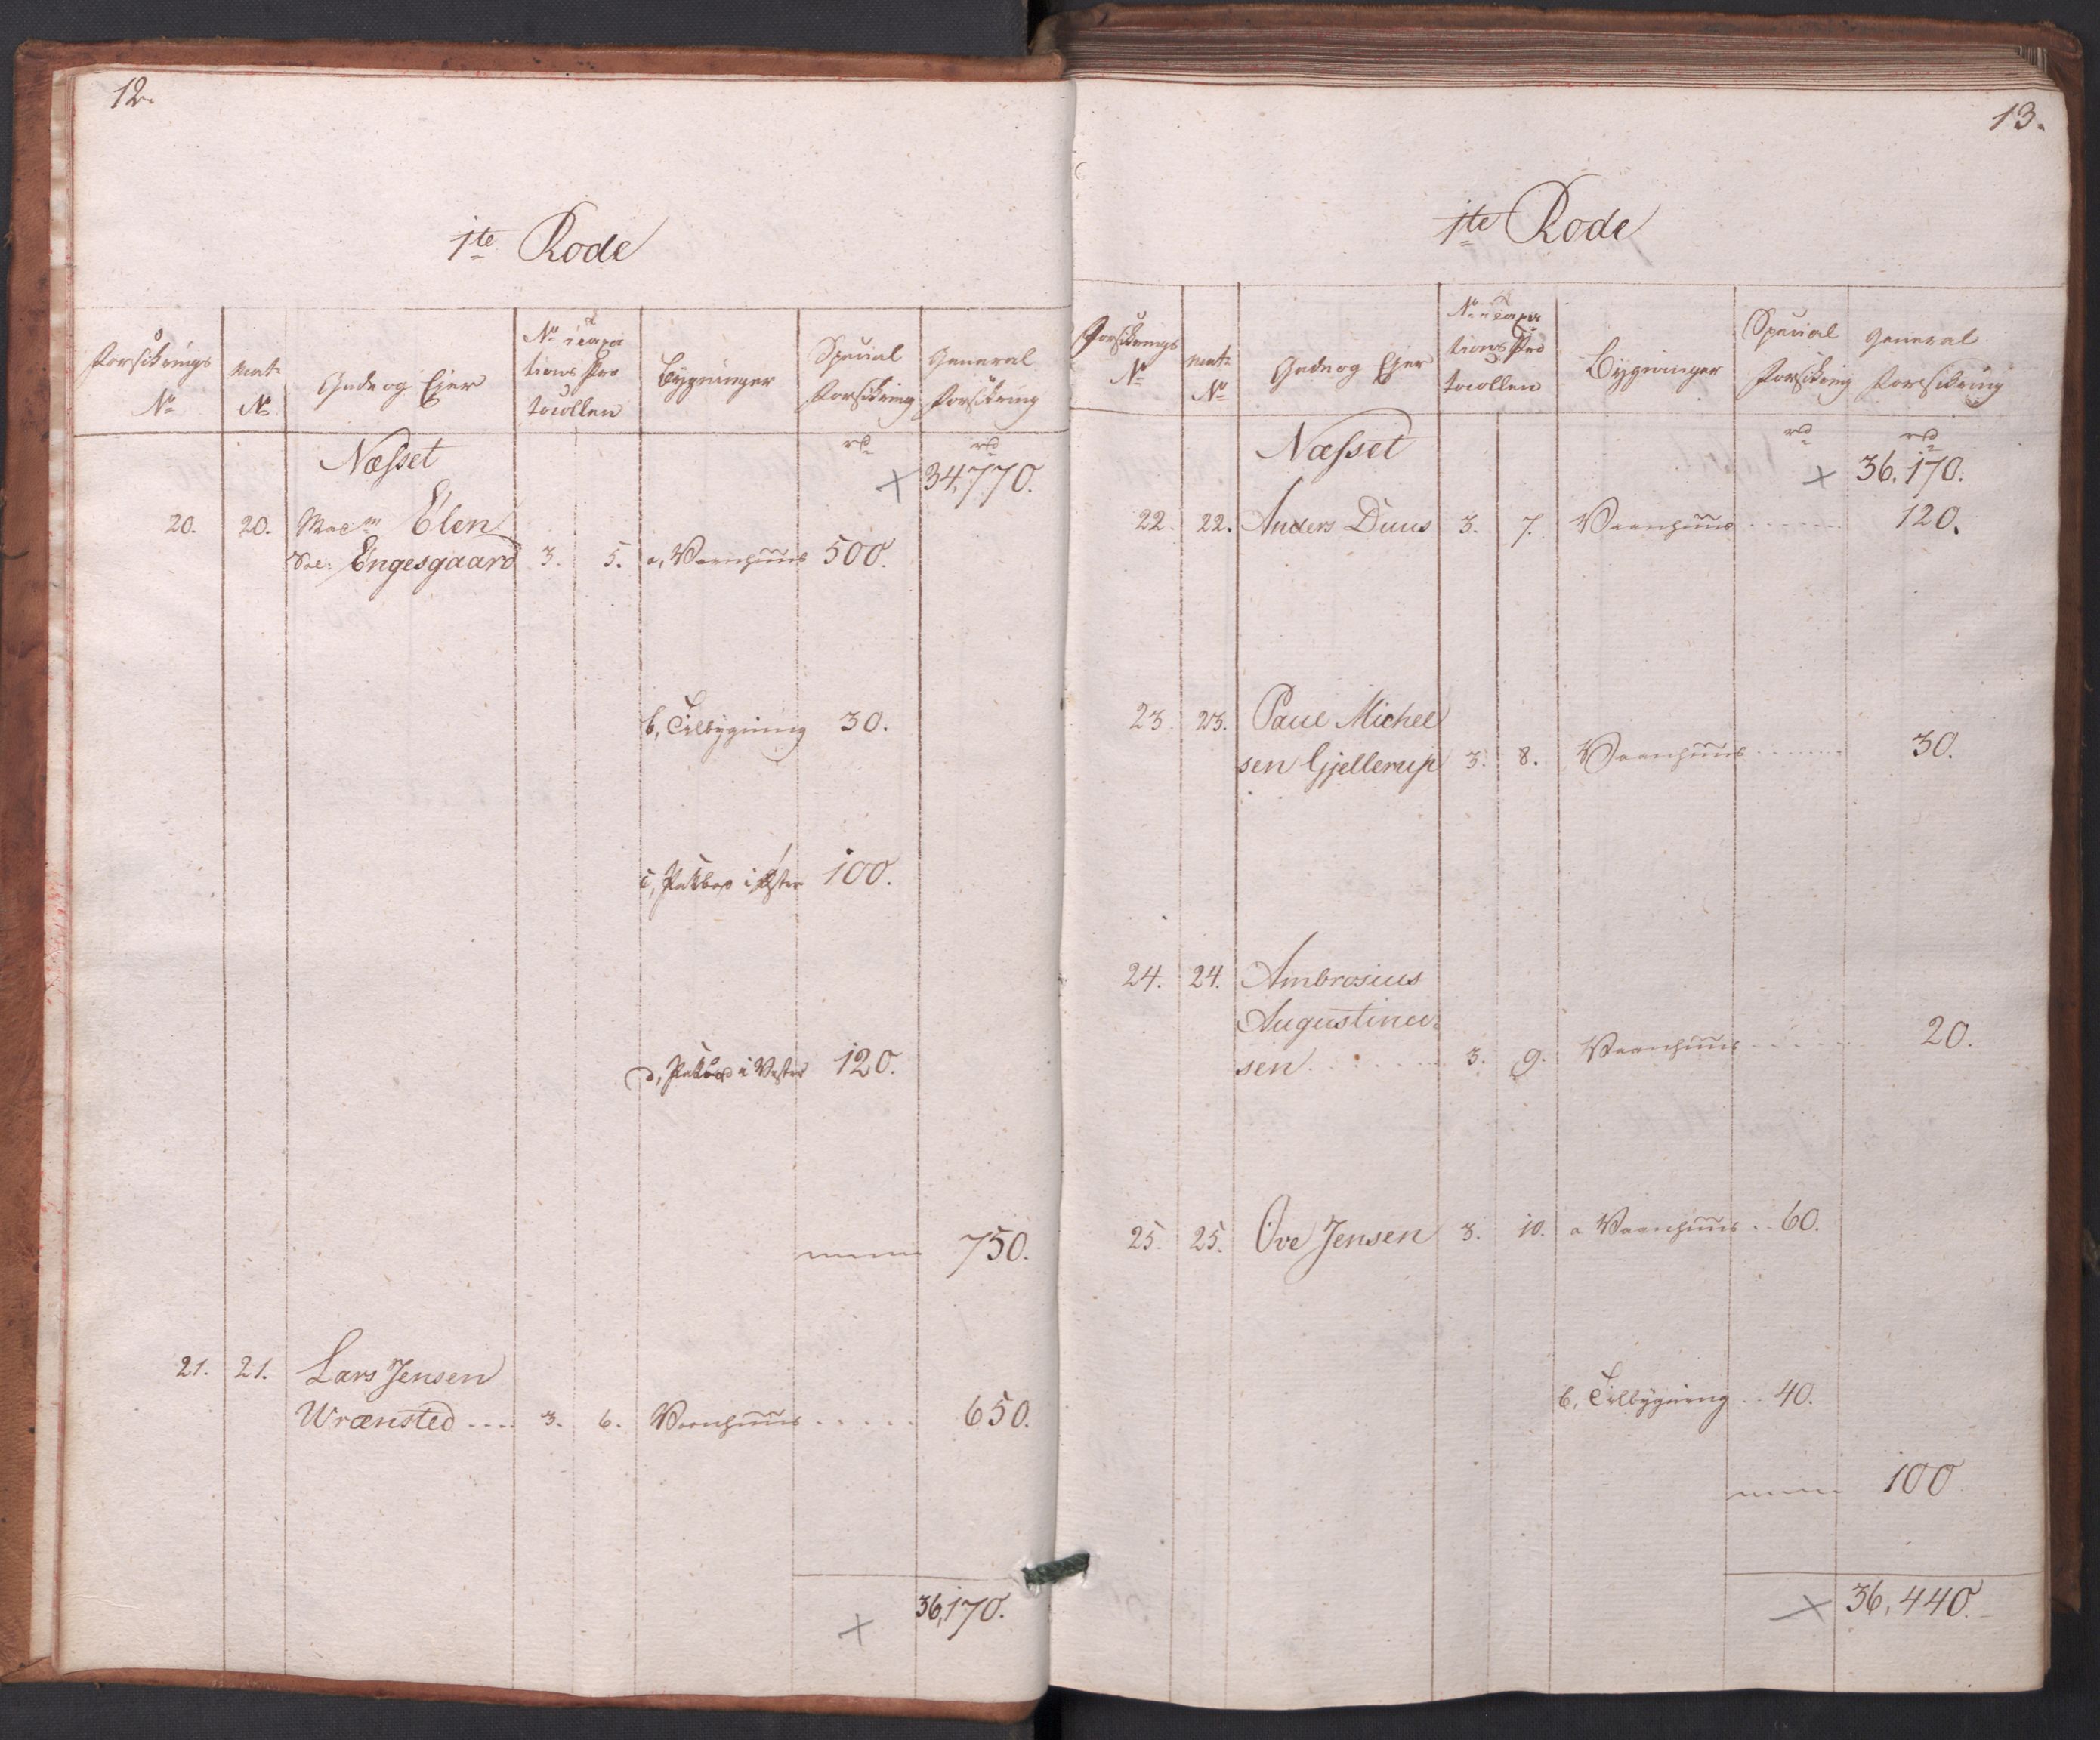 12.
1te Rode
Forsikrings No
Mat. No
Gade og Ejer
No i Taxa
tions Pro
tocollen
Bygninger
Special Forsikring
General Forsikring
Næsset
rd
rd
34,770.
20. 20. Mad.m Elen
Sal: Engesgaard 3. 5. a, Vaanhuus 500.
b, Tilbygning 30.
c, Pakboe i Øster 100.
d, Pakboe i Vester 120.
750.
21. 21. Lars Jensen
Wrænsted .... 3. 6. Vaanhuus ..... 650.
36,170.
13.
1te Rode
Forsikrings No
Mat. No
Gade og Ejer
No i Taxa
tions Pro
tocollen
Bygninger
Special Forsikring
General Forsikring
Næsset
rd
rd
36,170.
22. 22. Anders Duus 3. 7. Vaanhuus ...... 120.
23. 23. Paul Michel
sen Gjellerup 3. 8. Vaanhuus ...... 30.
24. 24. Ambrosius
Augustinu:
sen ...... 3. 9. Vaanhuus ..... 20.
25. 25. Ove Jensen 3. 10. a Vaanhuus .. 60.
b, Tilbygning .. 40.
100
36,440.